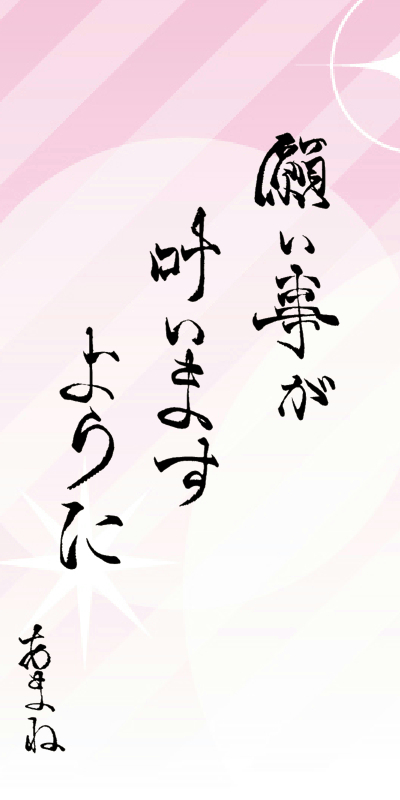 願い事が
叶います
ように
あまね